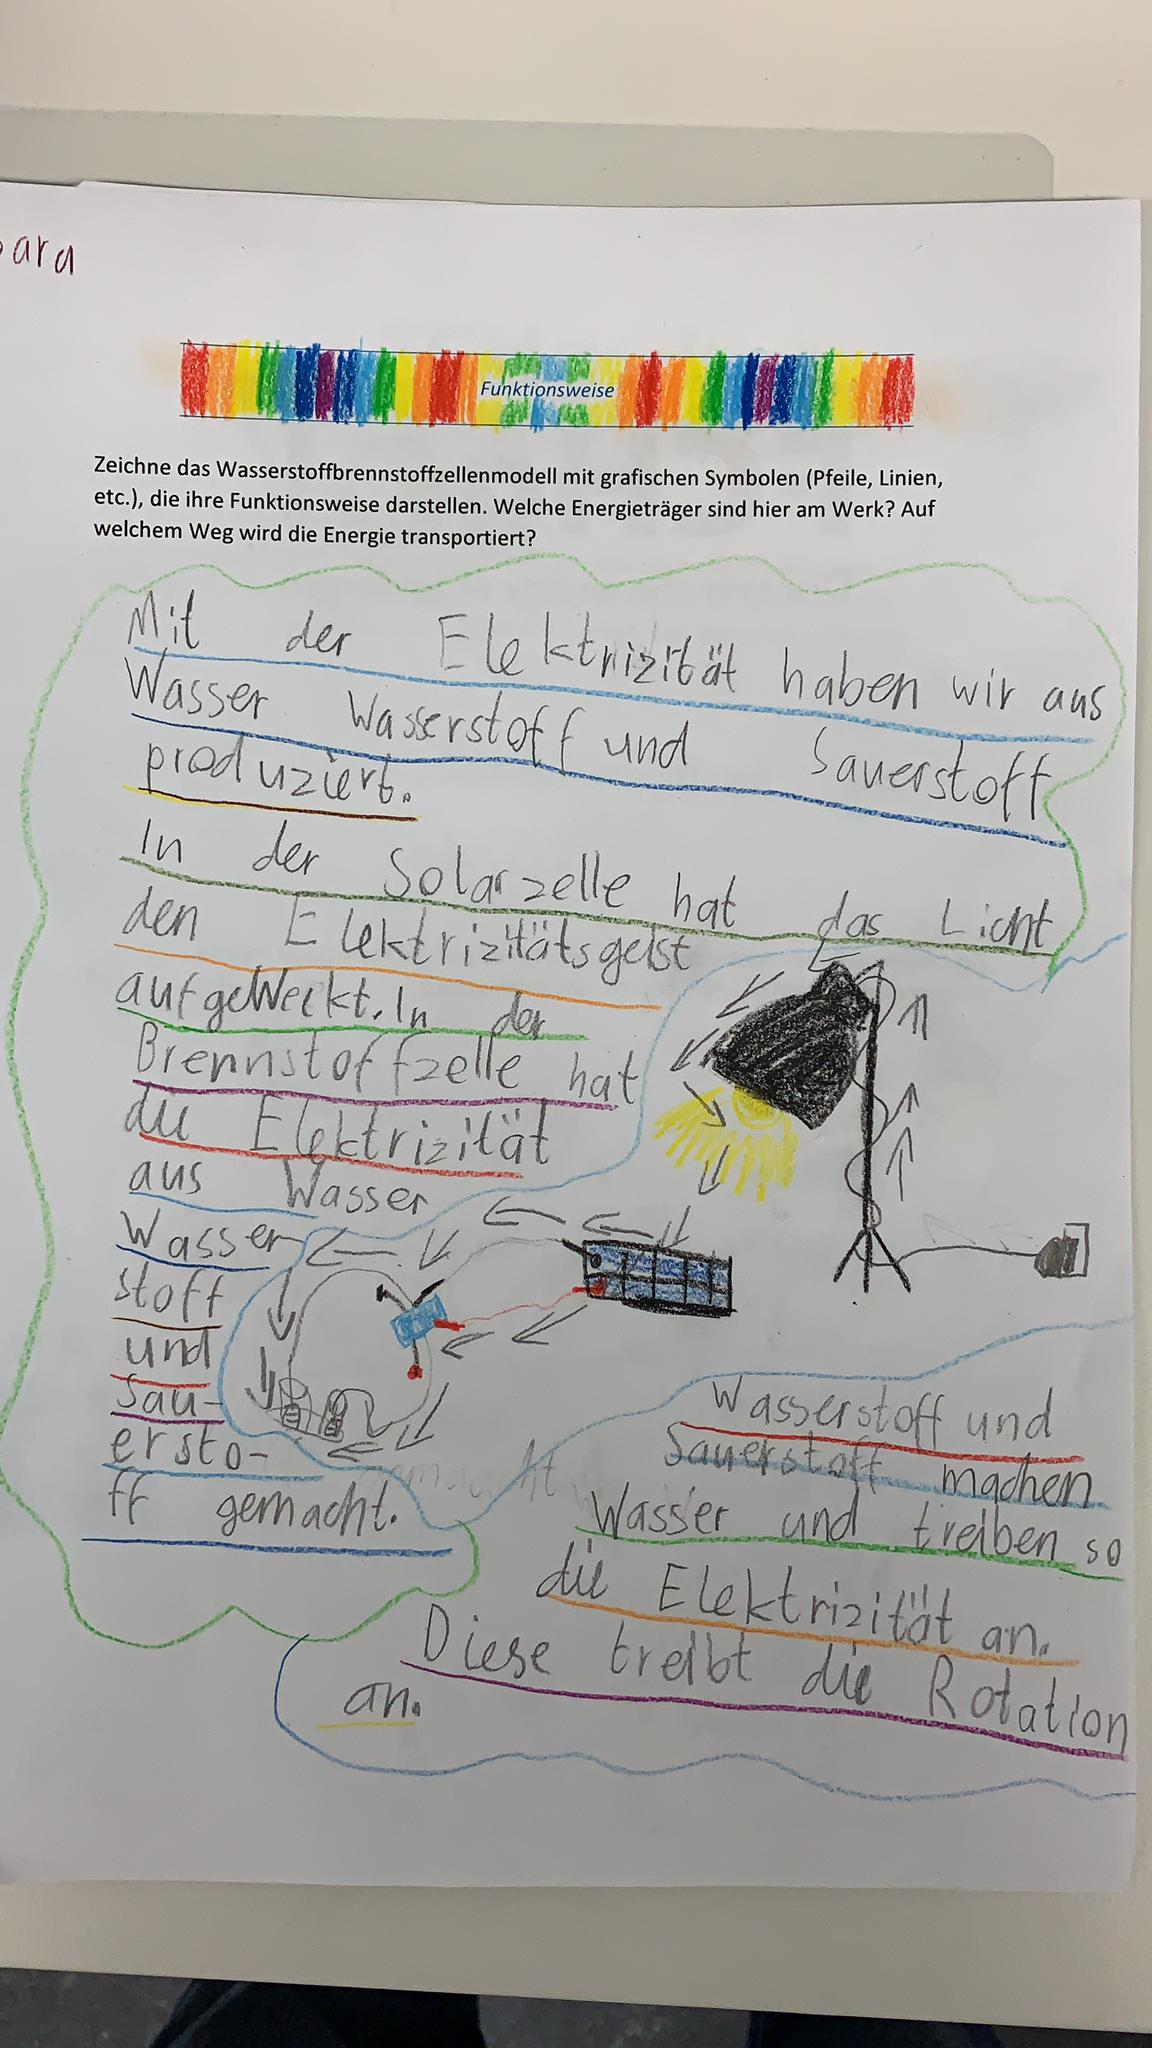 Funktionsweise
Zeichne das Wasserstoffbrennstoffzellenmodell mit grafischen Symbolen (Pfeile, Linien,
etc.), die ihre Funktionsweise darstellen. Welche Energieträger sind hier am Werk? Auf
welchem Weg wird die Energie transportiert?
Mit der Elektrizität haben wir aus
Wasser Wasserstoff und Sauerstoff
produziert.
In der Solarzelle hat das Licht
den Elektrizitätsgeist
aufgeweckt. In der
Brennstoffzelle hat
die Elektrizität
aus Wasser
Wasser
stoff
und
Sau-
ersto-
ff gemacht.
Wasserstoff und
Sauerstoff machen
Wasser und treiben so
die Elektrizität an.
Diese treibt die Rotation
an.